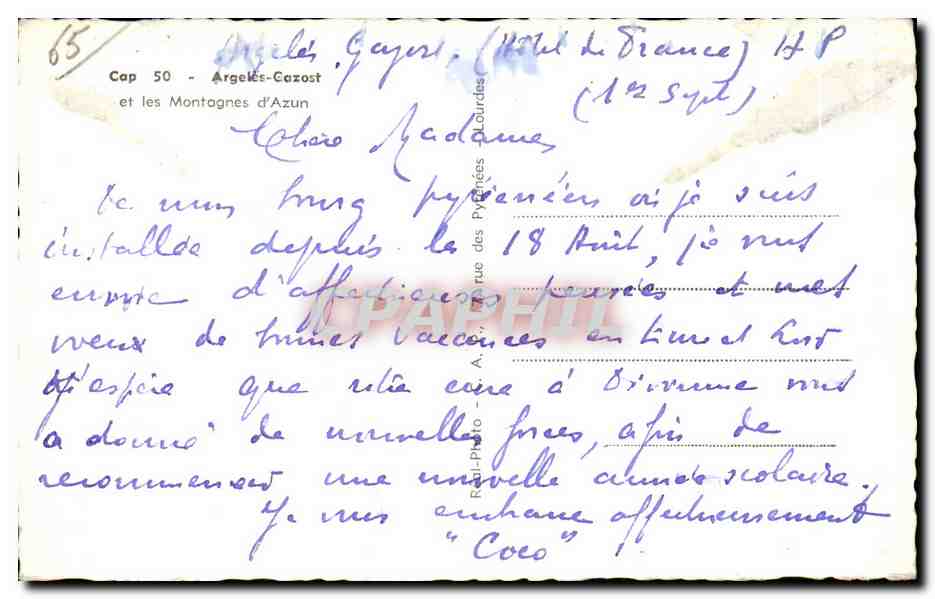 65
Argelès Gazost. (Hôtel de France) H P
Cap 50 - Argelès-Gazost
et les Montagnes d'Azun
(1er Sept)
Chère Madame
De mon bourg pyrénéen où je suis
installée depuis le 18 Août, je vous
envoie d'affectueuses pensées et mes
voeux de bonnes vacances en
J'espère que votre cure à Divonne vous
a donné de nouvelles forces, afin de
recommencer une nouvelle année scolaire.
Je vous embrasse affectueusement
"Coco" !
Real-Photo - A. rue des Pyrénées - Lourdes
CPAPHIL